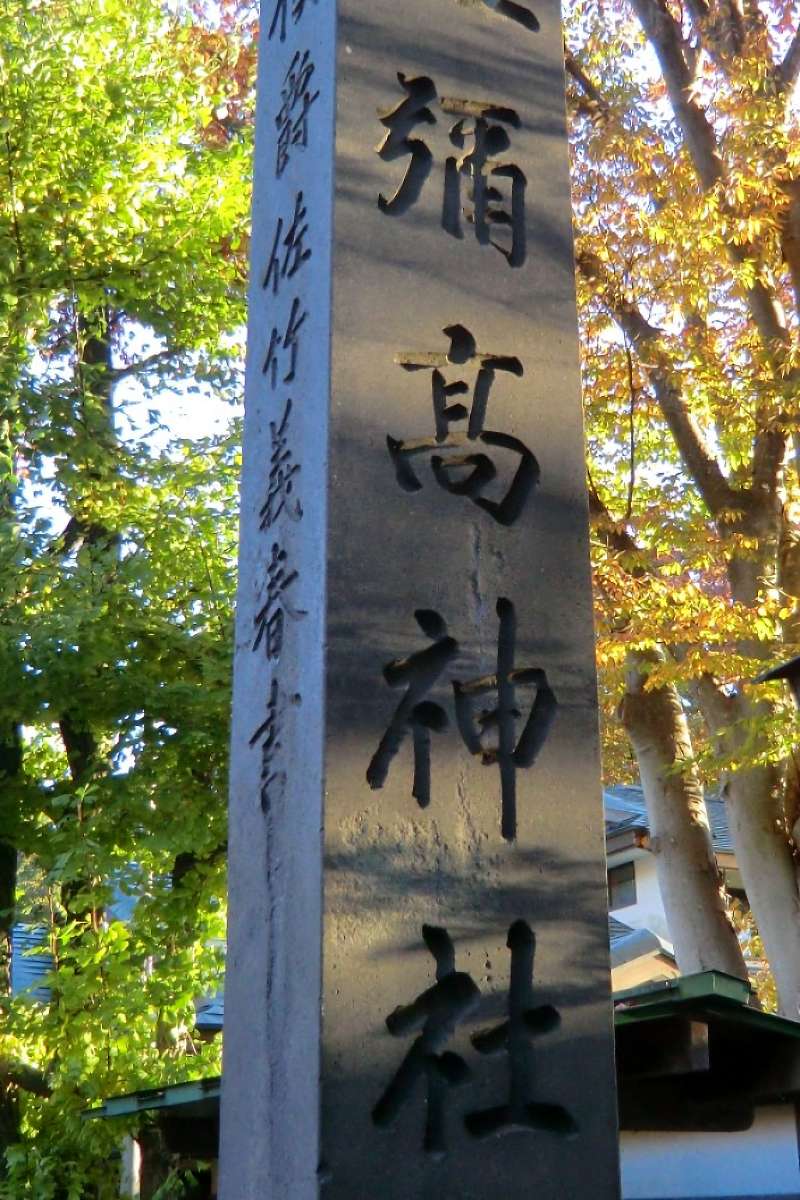 彌高神社
侯爵佐竹義春書